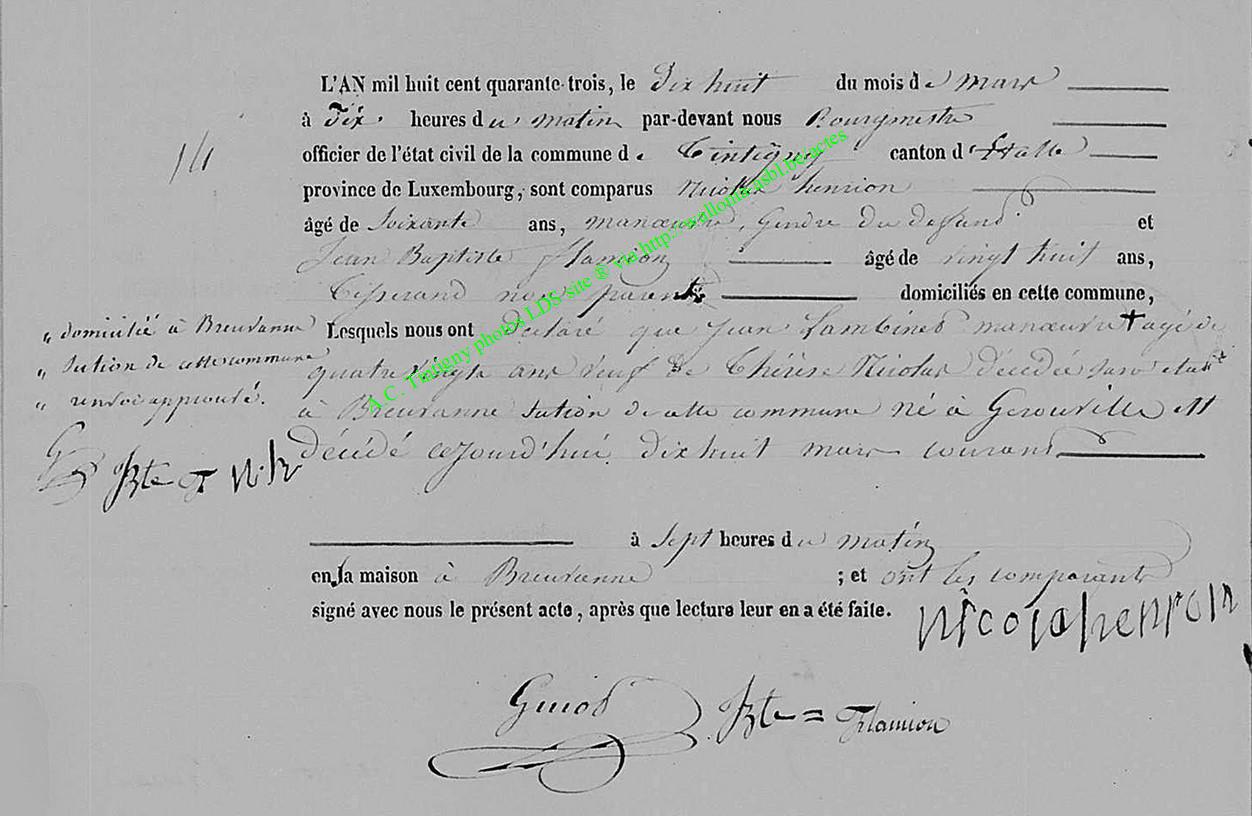 L'AN mil huit cent quarante-trois, le Dix huit du mois de mars
à Dix heures du matin par-devant nous Bourgmestre
14
officier de l'état civil de la commune de Tintigny canton d'Etalle
province de Luxembourg, sont comparus Nicolas henrion
âgé de Soixante ans, manœuvre, Gendre du defunt et
Jean Baptiste flamion âgé de vingt huit ans,
Tisserand non parent domiciliés en cette commune,
Lesquels nous ont declaré que Jean Lambinet manœuvre † agé de
quatre vingts ans veuf de Thérèse Nicolas décédée sans etat
à Breuvanne Section de cette commune né à Gerouville est
décédé cejourd'hui dixhuit mars courant
„ domicilié à Breuvanne
„ Section de cette commune
„ renvoi approuvé.
G Bte = F N. h
à Sept heures du matin
en la maison à Breuvanne ; et ont les comparants
signé avec nous le présent acte, après que lecture leur en a été faite.
nicolas henrion
Guiot Bte = Flamion
A.C. Tintigny photos LDS-site ® via http://wallonica.asbl.be/actes